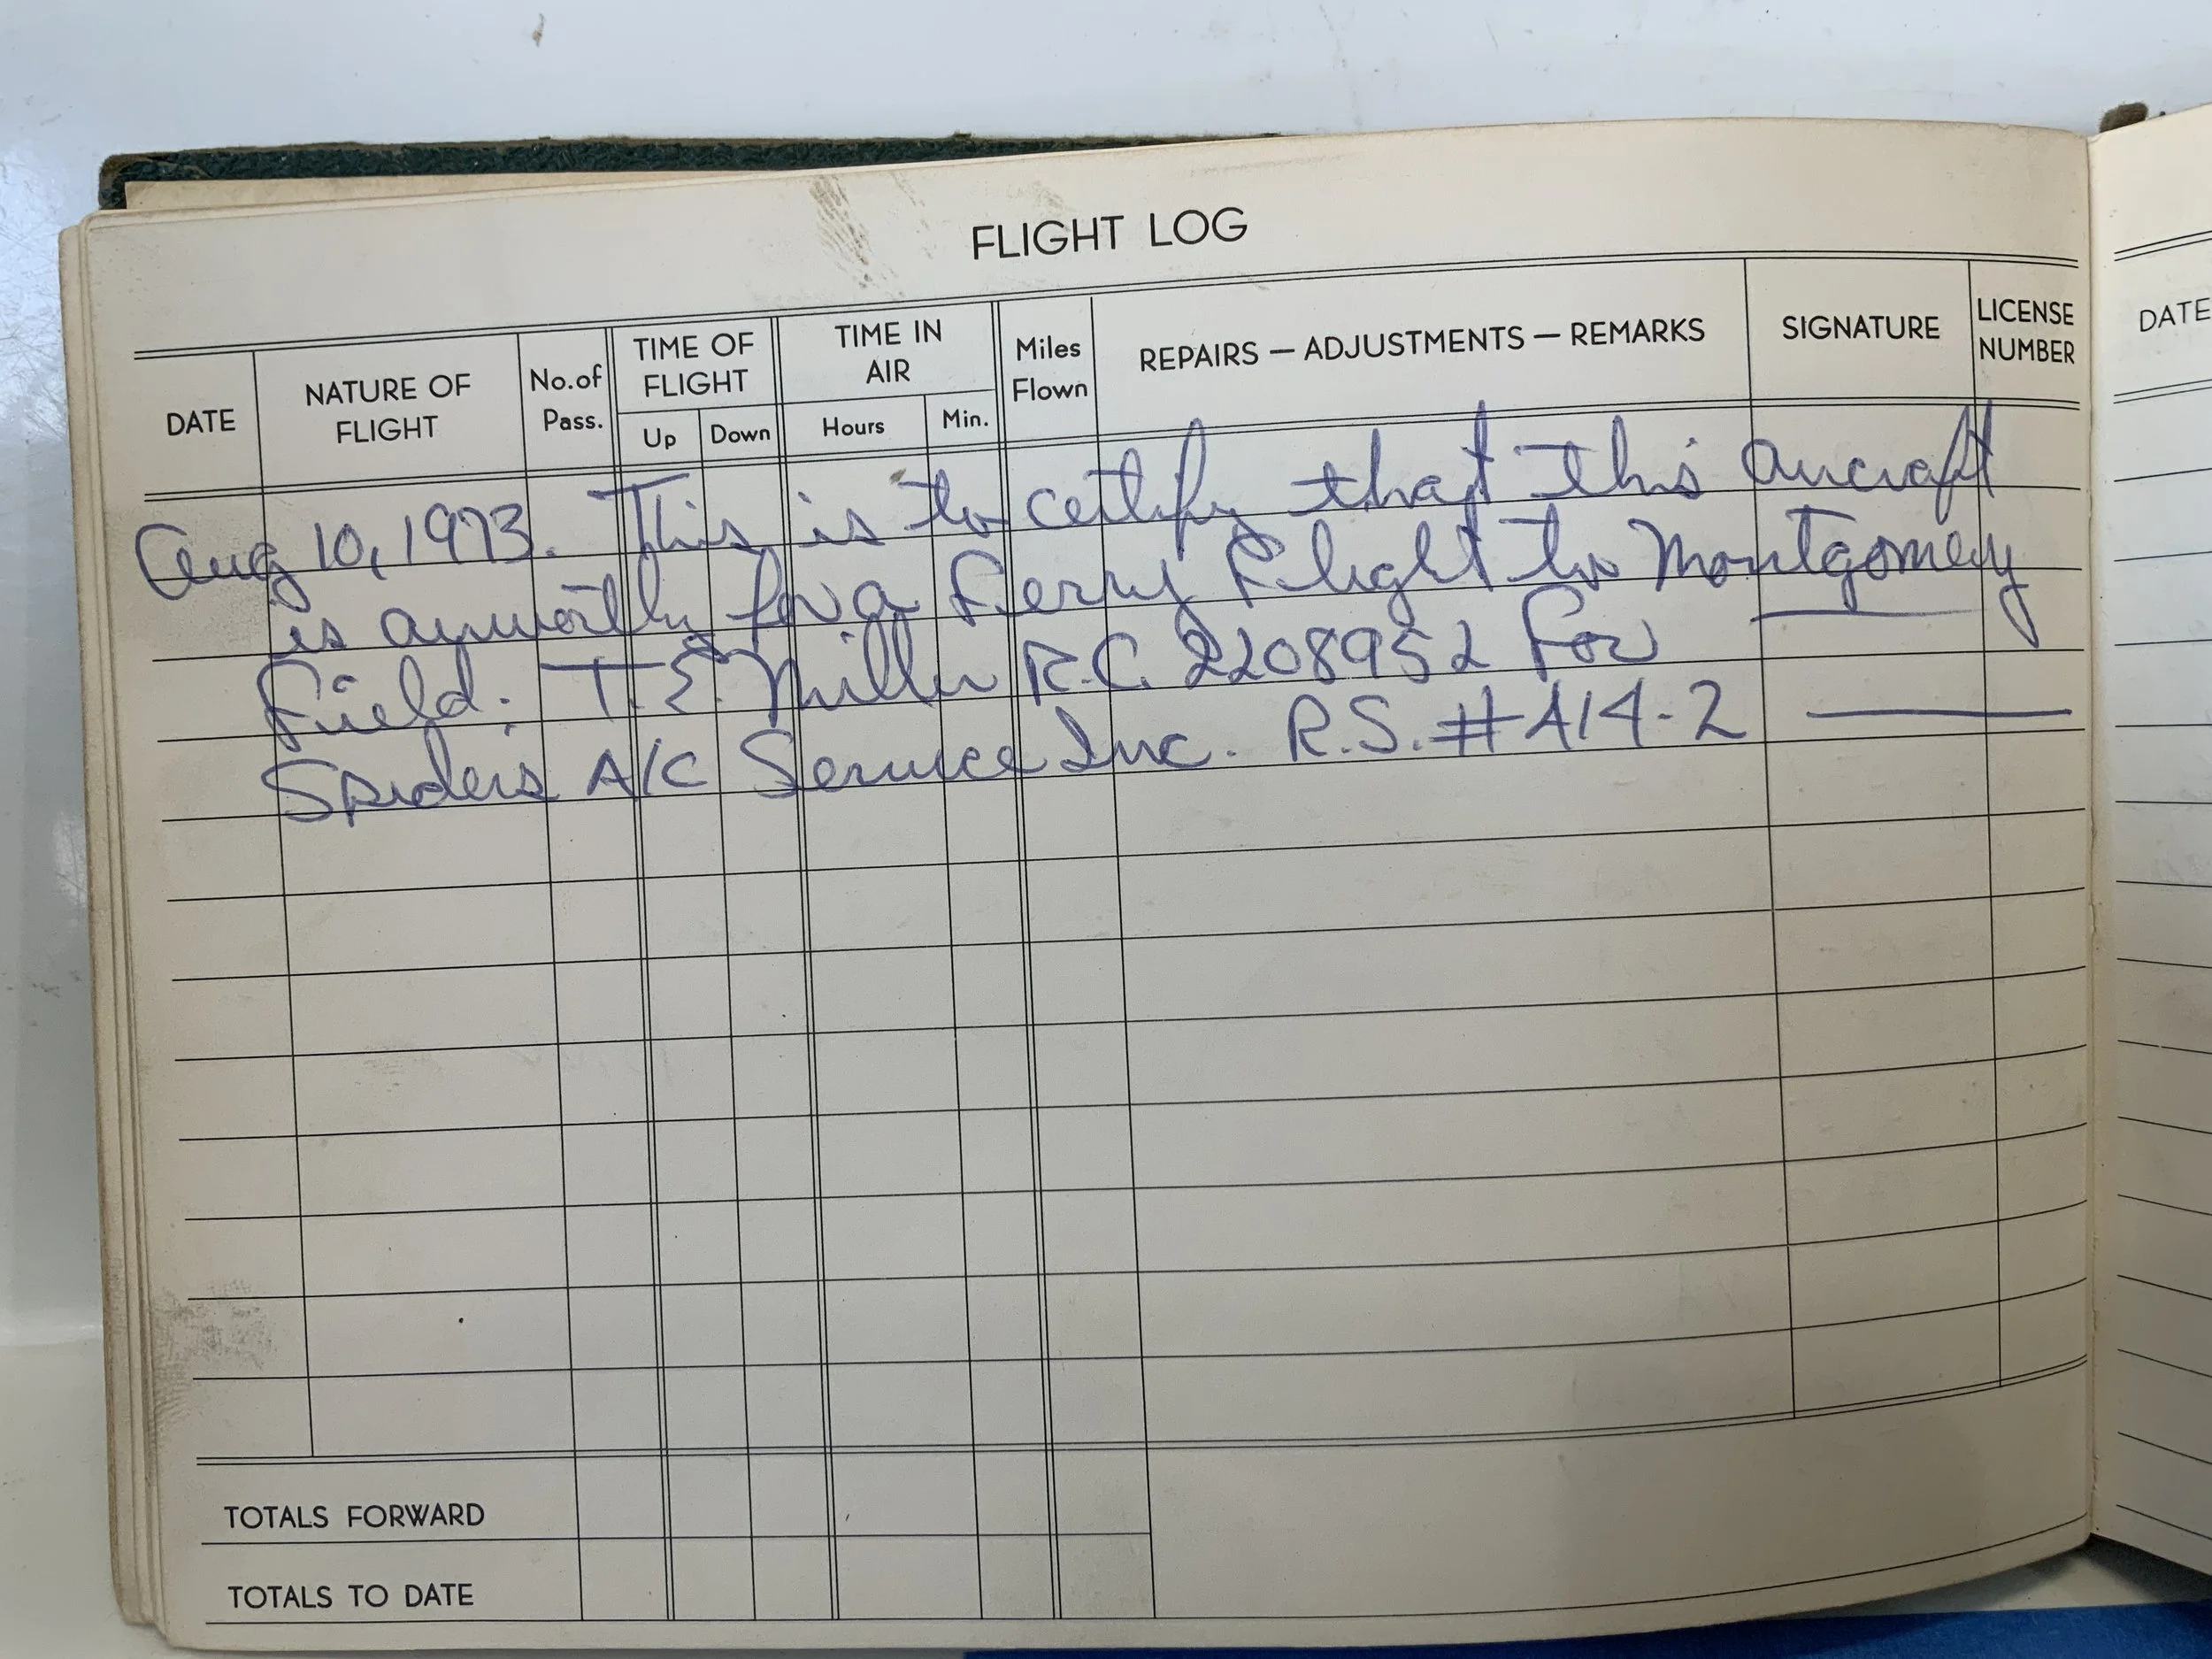 FLIGHT LOG
DATE
NATURE OF FLIGHT
No. of Pass.
TIME OF FLIGHT
Up
Down
TIME IN AIR
Hours
Min.
Miles Flown
REPAIRS — ADJUSTMENTS — REMARKS
SIGNATURE
LICENSE NUMBER
DATE
Aug 10, 1973. This is to certify that this aircraft
is airworthy for a Ferry Flight to Montgomery
Field. T.E. Miller R.C. 2208952 For
Spiders A/C Service Inc. R.S. #414-2
TOTALS FORWARD
TOTALS TO DATE